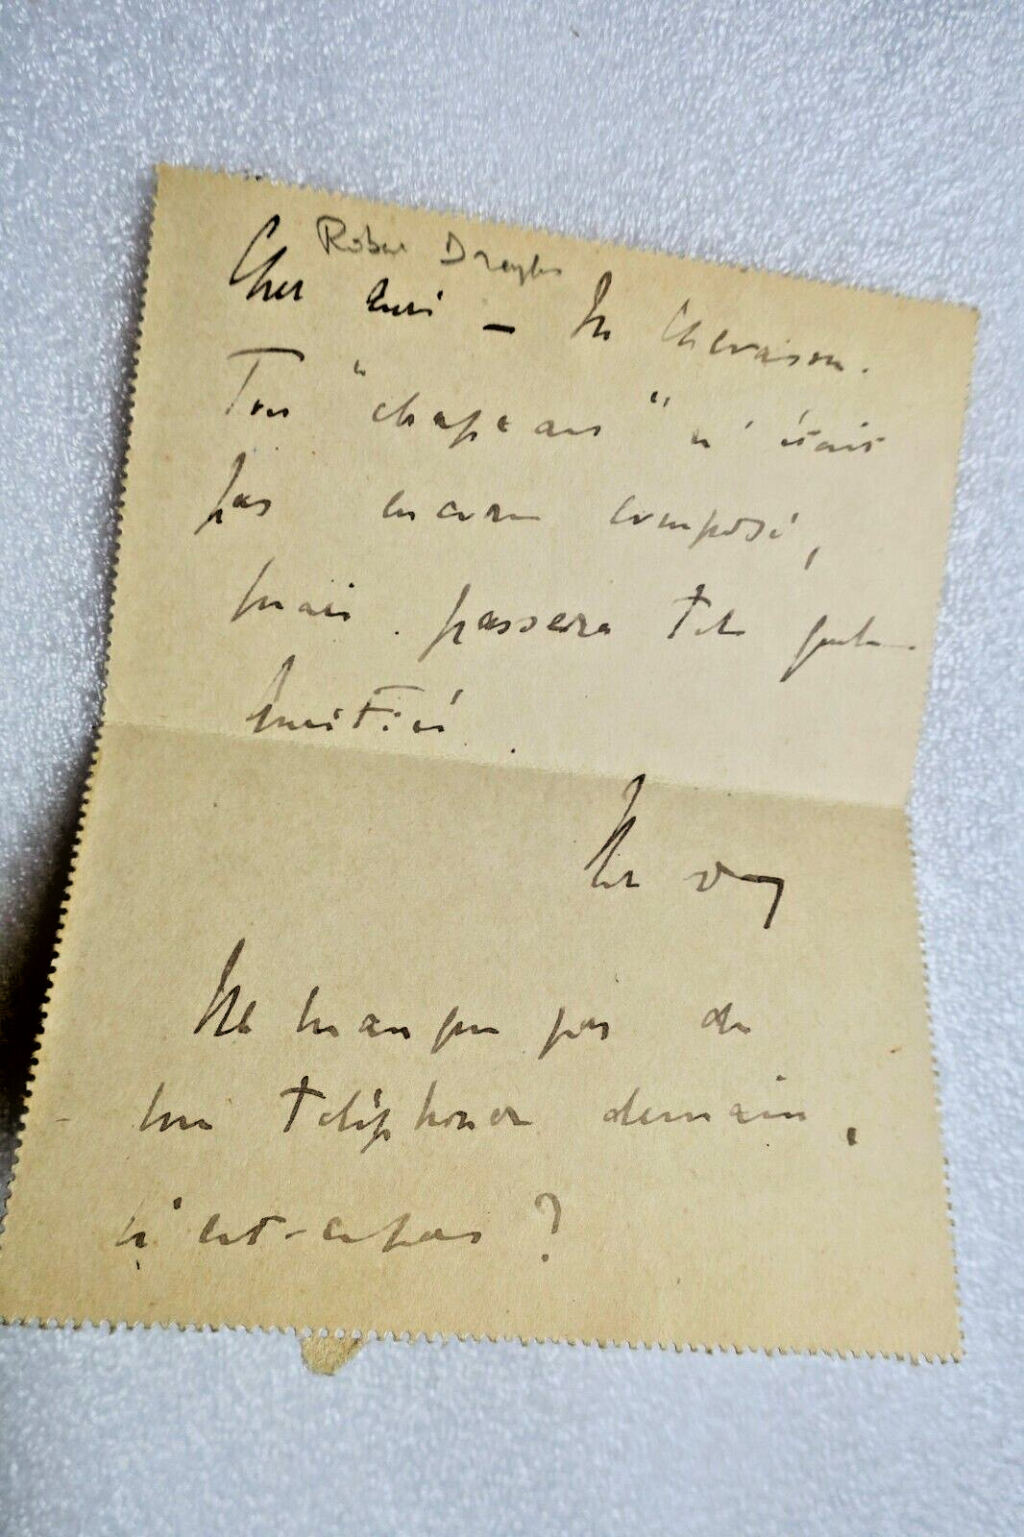 Robert Dreyfus
Cher ami –
Ton "chapeau" n'était
pas encore composé,
mais passera tel quel.
Amitiés.
Ne manque pas de
me téléphoner demain,
n'est-ce pas ?